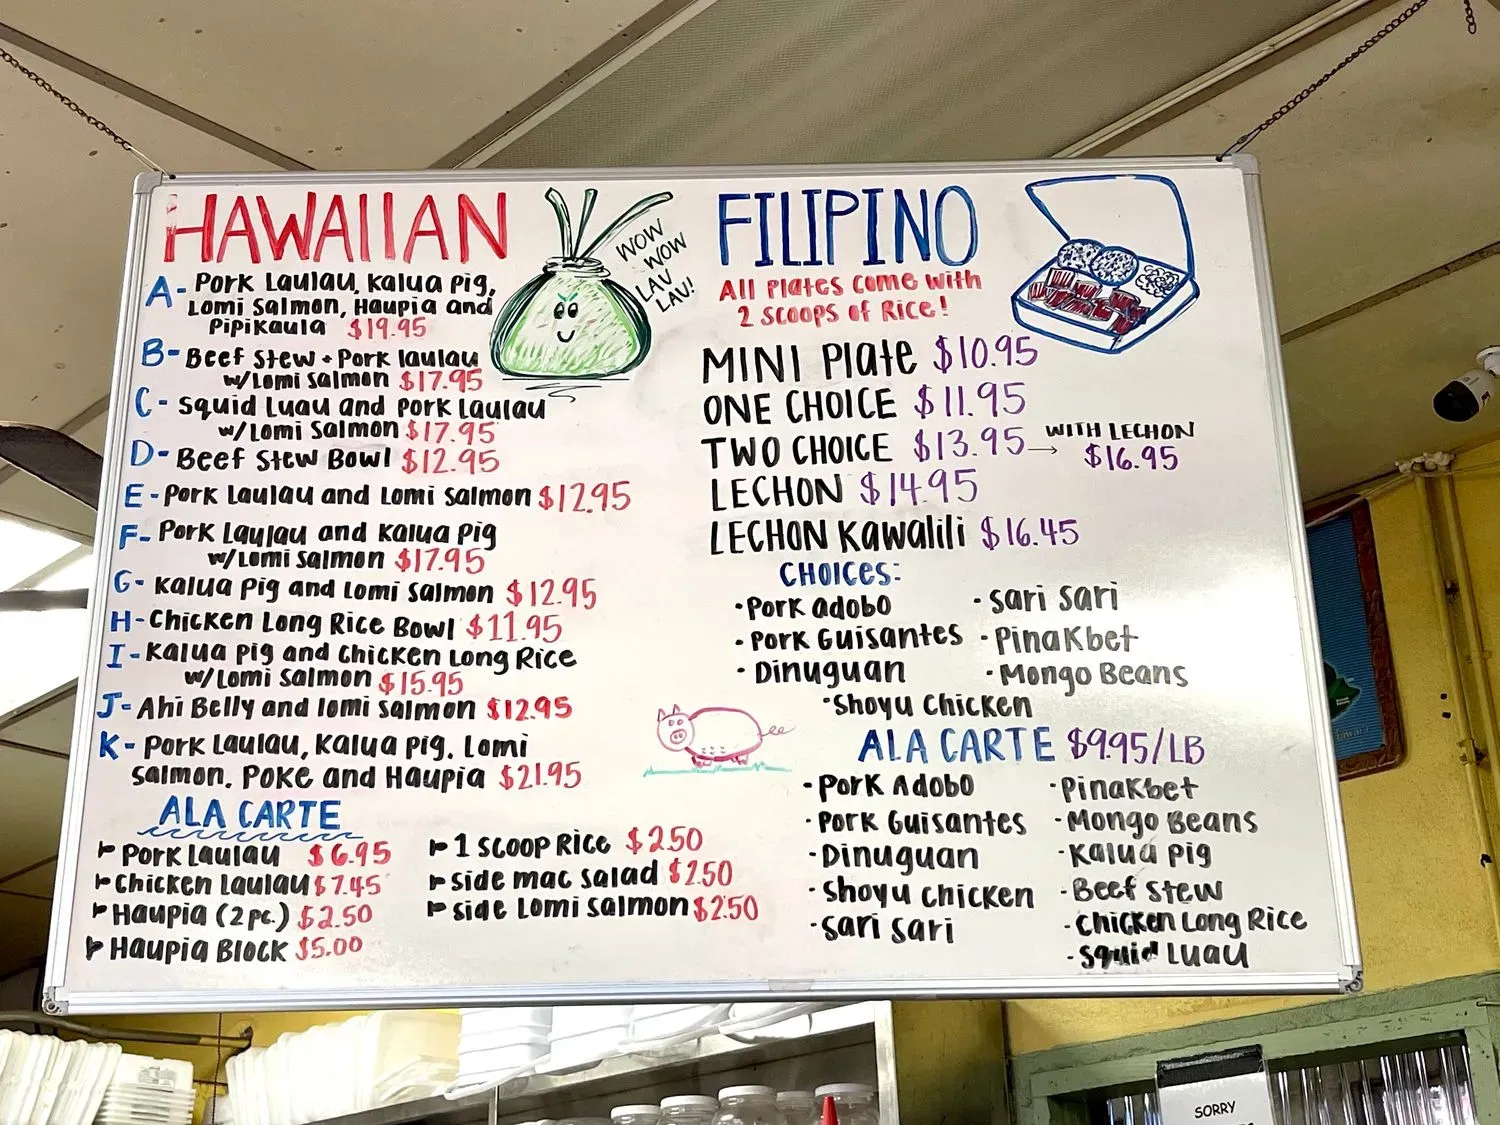 HAWAIIAN
A- Pork Laulau, Kalua Pig,
Lomi Salmon, Haupia and
Pipikaula $19.95
B- Beef Stew + Pork laulau
w/Lomi Salmon $17.95
C- Squid Luau and Pork Laulau
w/Lomi Salmon $17.95
D- Beef Stew Bowl $12.95
E- Pork Laulau and Lomi Salmon $12.95
F- Pork Laulau and Kalua Pig
w/Lomi Salmon $17.95
G- Kalua Pig and Lomi Salmon $12.95
H- Chicken Long Rice Bowl $11.95
I- Kalua Pig and Chicken Long Rice
w/Lomi Salmon $15.95
J- Ahi Belly and lomi salmon $12.95
K- Pork Laulau, Kalua Pig, Lomi
Salmon, Poke and Haupia $21.95
ALA CARTE
Pork Laulau $6.95
Chicken Laulau $7.45
Haupia (2pc.) $2.50
Haupia Block $5.00
1 scoop Rice $2.50
side mac salad $2.50
side Lomi Salmon $2.50
WOW
WOW
LAU
LAU!
FILIPINO
All Plates Come With
2 Scoops of Rice!
MINI Plate $10.95
ONE CHOICE $11.95
TWO CHOICE $13.95 → WITH LECHON
$16.95
LECHON $14.95
LECHON Kawalili $16.45
CHOICES:
• Pork adobo
• Pork Guisantes
• Dinuguan
• Sari Sari
• Pinakbet
• Mongo Beans
• Shoyu Chicken
ALA CARTE $9.95/LB
• Pork Adobo
• Pork Guisantes
• Dinuguan
• Shoyu Chicken
• Sari Sari
• Pinakbet
• Mongo Beans
• Kalua Pig
• Beef Stew
• Chicken Long Rice
• Squid Luau
SORRY